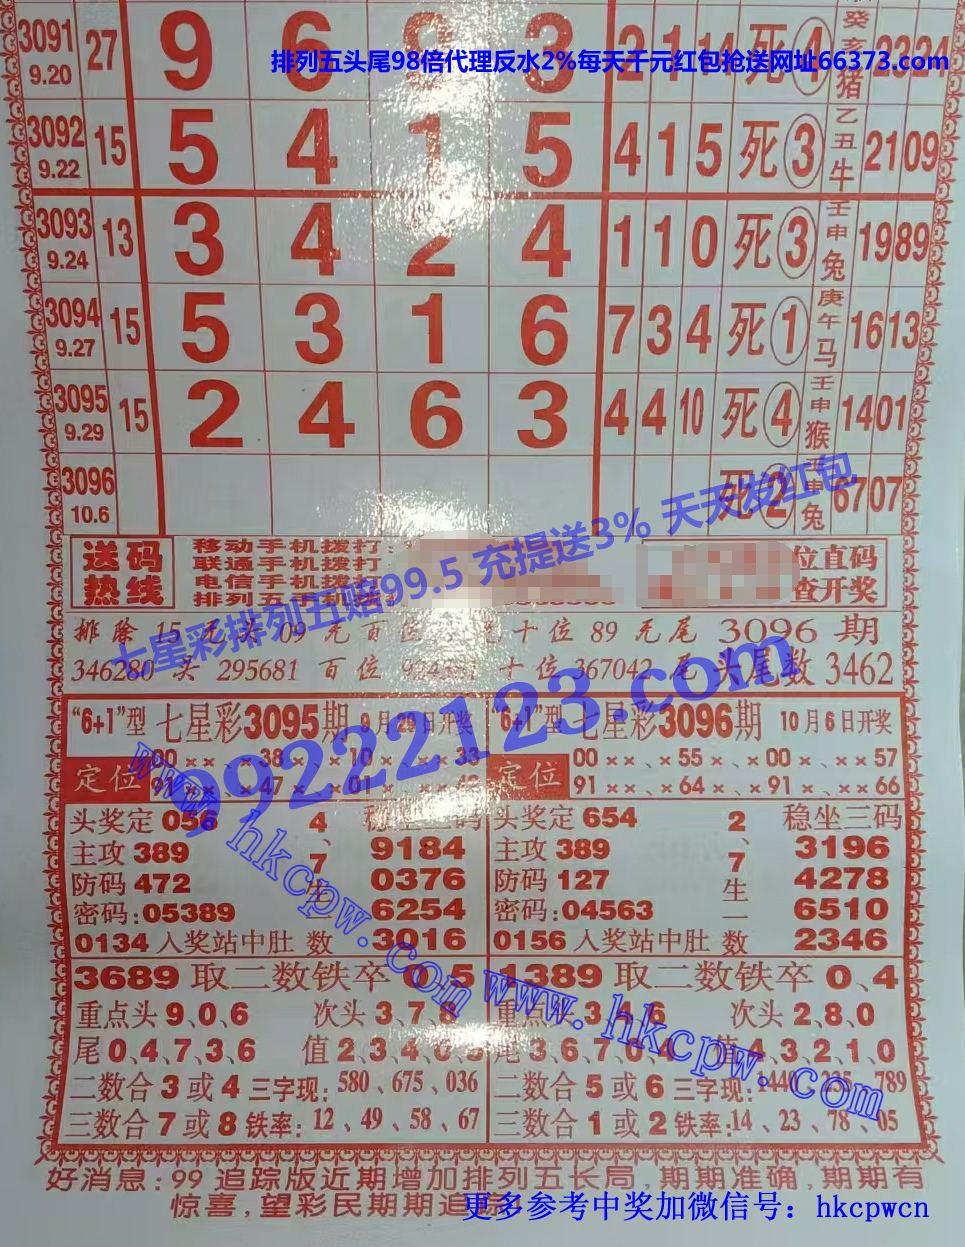 3091 27 9 6 9 3 2 1 14 死④ 癸亥猪 23 24
9.20
排列五头尾98倍代理反水2%每天千元红包抢送网址66373.com
3092 15 5 4 1 5 4 1 5 死③ 乙丑牛 21 09
9.22
3093 13 3 4 2 4 1 1 0 死③ 壬申兔 19 89
9.24
3094 15 5 3 1 6 7 3 4 死① 庚午马 16 13
9.27
3095 15 2 4 6 3 4 4 10 死④ 壬申猴 14 01
9.29
3096 死② 壬申兔 67 07
10.6
送码热线
移动手机拨打:
联通手机拨打
电信手机拨打
排列五手机
位直码
查开奖
七星彩排列五赔99.5 充提送3% 天天发红包
排除 15 无头 09 无百位 十位 89 无尾 3096 期
346280 头 295681 百位 十位 367042 尾 头尾数 3462
09222123.com
“6+1”型 七星彩3095期 9月29日开奖
定位 00 ××、×38×、×10×、×33
91 ××、×47×、×01×、
头奖定 056
主攻 389
防码 472
密码:05389
0134 入奖站中肚
4、7生一数
稳坐三码
9184
0376
6254
3016
3689 取二数铁卒 0、5
重点头 9、0、6 次头 3、7、8
尾 0、4、7、3、6 值 2、3、4、
二数合 3 或 4 三字现: 580、675、036
三数合 7 或 8 铁率: 12、49、58、67
“6+1”型 七星彩3096期 10月6日开奖
定位 00 ××、×55×、×00×、×57
91 ××、×64×、×91×、×66
头奖定 654
主攻 389
防码 127
密码:04563
0156 入奖站中肚
2、7生一数
稳坐三码
3196
4278
6510
2346
1389 取二数铁卒 0、4
重点头 3、 次头 2、8、0
尾 3、6、7、 值 4、3、2、1、0
二数合 5 或 6 三字现: 789
三数合 1 或 2 铁率: 14、23、78、05
www.hkcpw.com
www.hkcpw.com
好消息:99 追踪版近期增加排列五长局,期期准确,期期有
惊喜,望彩民期期追踪
更多参考中奖加微信号：hkcpwcn